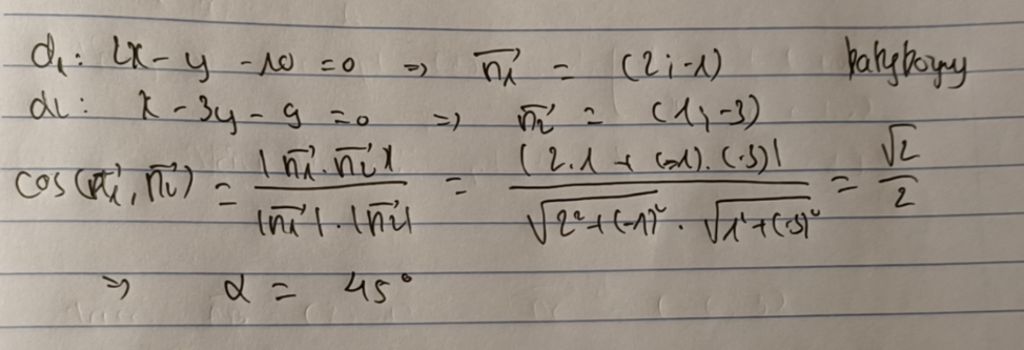 d₁: 2x - y - 10 = 0 => n₁⃗ = (2; -1) babyboyuy
d₂: x - 3y - 9 = 0 => n₂⃗ = (1; -3)
cos(n₁⃗, n₂⃗) = |n₁⃗ . n₂⃗| / |n₁⃗| . |n₂⃗| = |2.1 + (-1).(-3)| / √2² + (-1)² . √1² + (-3)² = √2 / 2
=> α = 45°